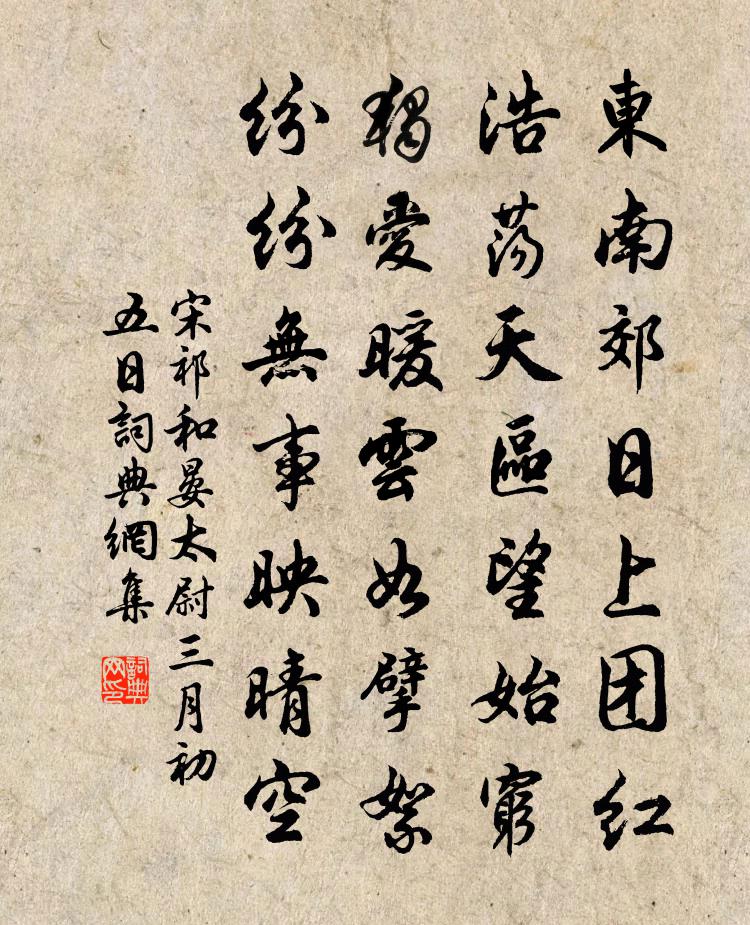 東南郊日上团红
浩荡天區望始窮
獨愛暖雲如擘絮
紛紛無事映晴空
宋祁和晏太尉三月初
五日詞典網集
詞典
网印